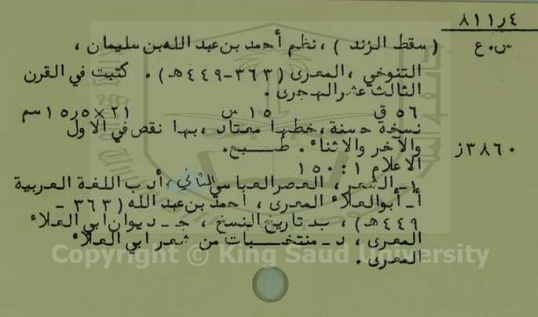 ٨١١ر٤
س٠ع ( سقط الزند ) ، نظم أحمد بن عبد الله بن سليمان ،
التنوخي ، المعرى ( ٣٦٣-٤٤٩هـ ) ٠ كتبت في القرن
الثالث عشر الهجرى ٠
٥٦ ق ١٥ س ٢١×٥ر١٥سم
نسخة حسنة ، خطها معتاد ، بها نقص في الاول
ز٣٨٦٠ والآخر والاثناء ٠ طبع ٠
الاعلام ١ : ١٥٠
١- الشعر ، العصر العباسي الثاني ، أدب اللغة العربية
أ- أبو العلاء المعرى ، احمد بن عبد الله ( ٣٦٣ -
٤٤٩هـ ) ، ب- تاريخ النسخ ، ج - ديوان ابي العلاء
المعرى ، د- منتخبات من شعر ابي العلاء
المعرى ٠
Copyright © King Saud University